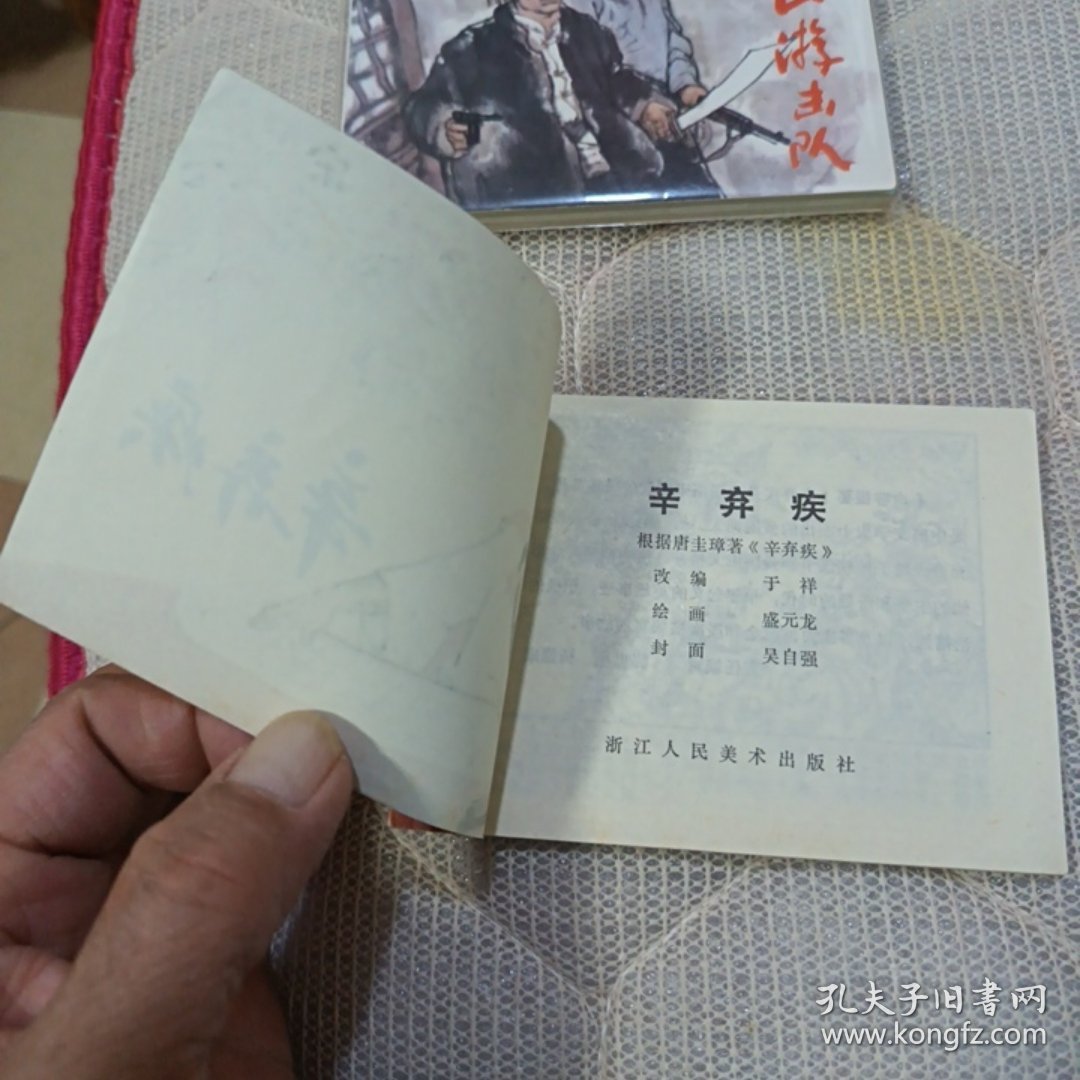 游击队
辛弃疾
根据唐圭璋著《辛弃疾》
改编 于祥
绘画 盛元龙
封面 吴自强
浙江人民美术出版社
孔夫子旧书网
www.kongfz.com